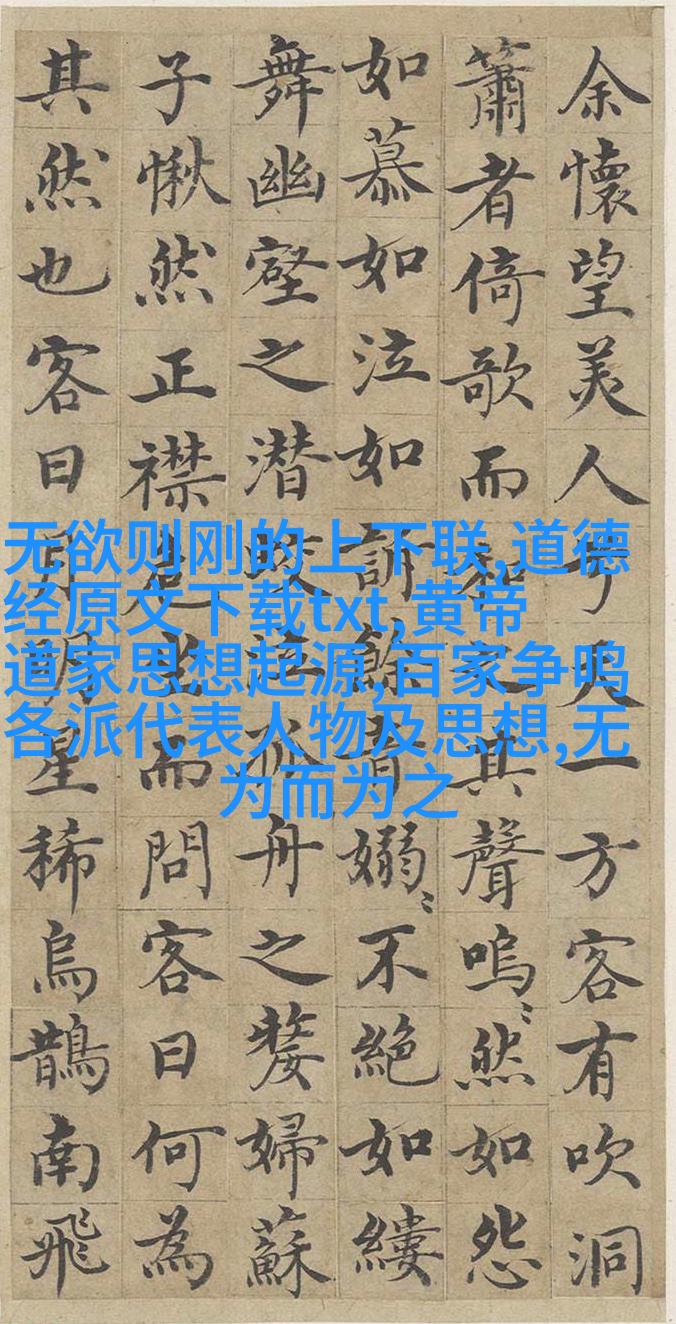 余懷望美人兮天一方客有吹洞
簫者倚歌而和之其聲嗚〻然如怨
如慕如泣如訴餘音嫋〻不絕如縷
舞幽壑之潛蛟泣孤舟之嫠婦蘇
子愀然正襟危坐而問客曰何為
其然也客曰月明星稀烏鵲南飛
无欲则刚的上下联,道德
经原文下载txt,黄帝
道家思想起源,百家争鸣
各派代表人物及思想,无
为而为之